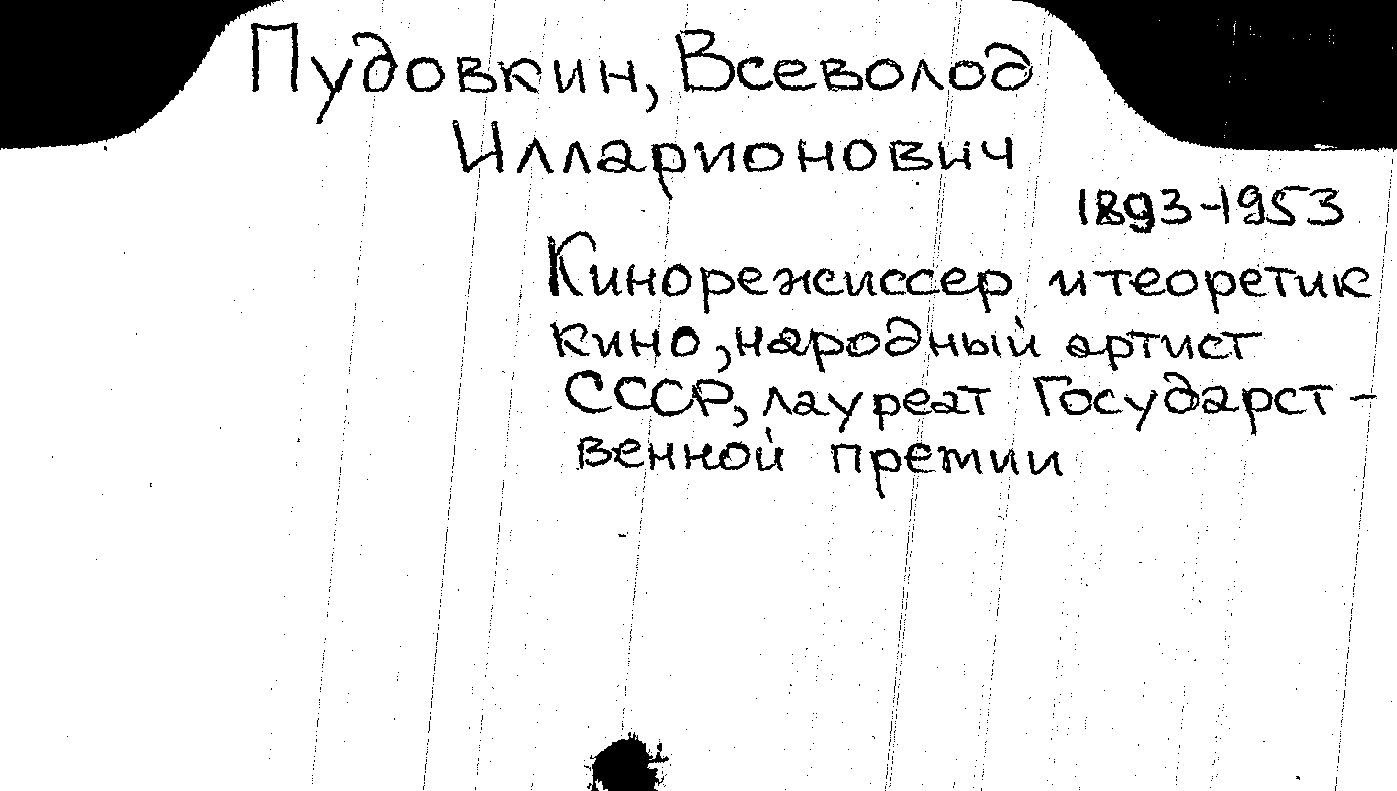 Пудовкин, Всеволод
Илларионович
1893-1953
Кинорежиссер и теоретик
кино, народный артист
СССР, лауреат Государст-
венной премии